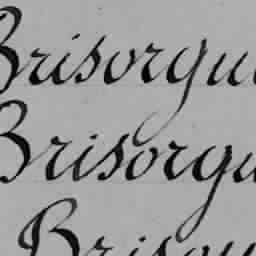 Brisorgu
Brisorgu
Brisou